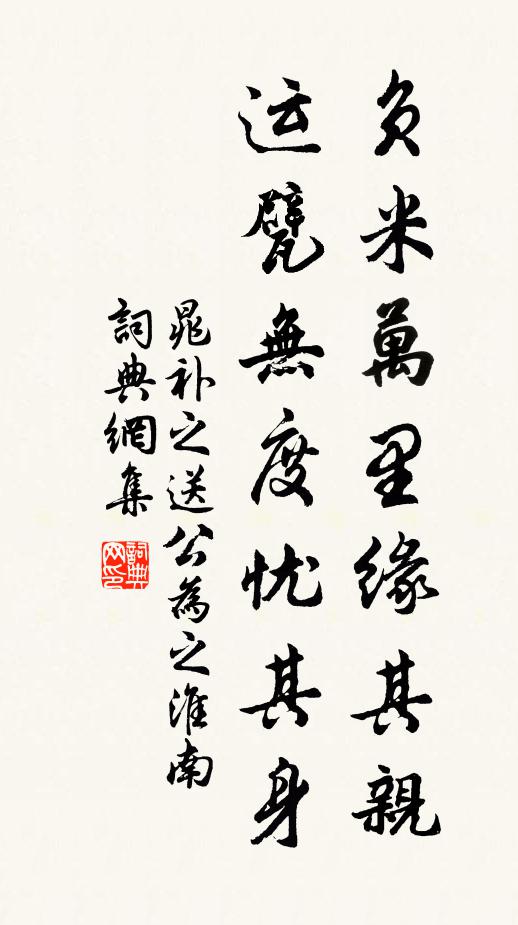 负米萬里缘其親
运甓無度忧其身
晁补之送公為之淮南
詞典網集
詞典网印